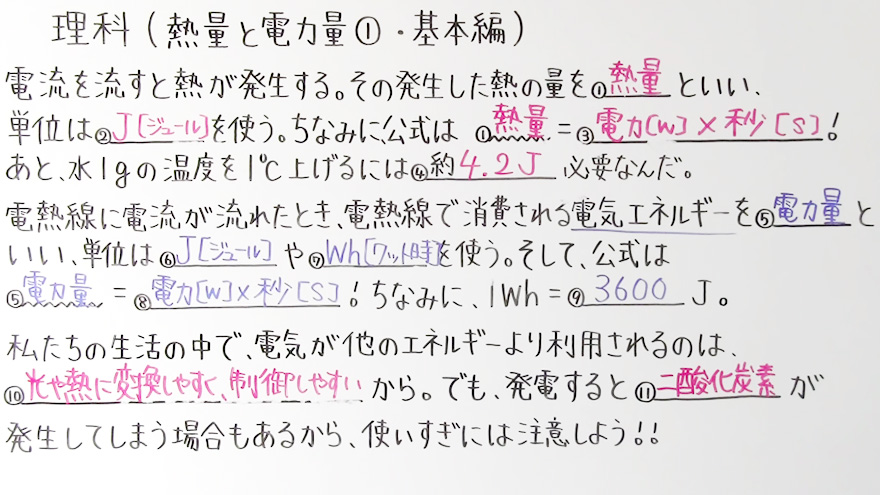 理科(熱量と電力量①・基本編)
電流を流すと熱が発生する。その発生した熱の量を①熱量といい、
単位は②J[ジュール]を使う。ちなみに、公式は ①熱量=③電力[W]×秒[S]!
あと、水1gの温度を1℃上げるには④約4.2J必要なんだ。
電熱線に電流が流れたとき、電熱線で消費される電気エネルギーを⑤電力量と
いい、単位は⑥J[ジュール]や⑦Wh[ワット時]を使う。そして、公式は
⑤電力量=⑧電力[W]×秒[S]!ちなみに、1Wh=⑨3600J。
私たちの生活の中で、電気が他のエネルギーより利用されるのは、
⑩光や熱に変換しやすく、制御しやすいから。でも、発電すると⑪二酸化炭素が
発生してしまう場合もあるから、使いすぎには注意しよう!!